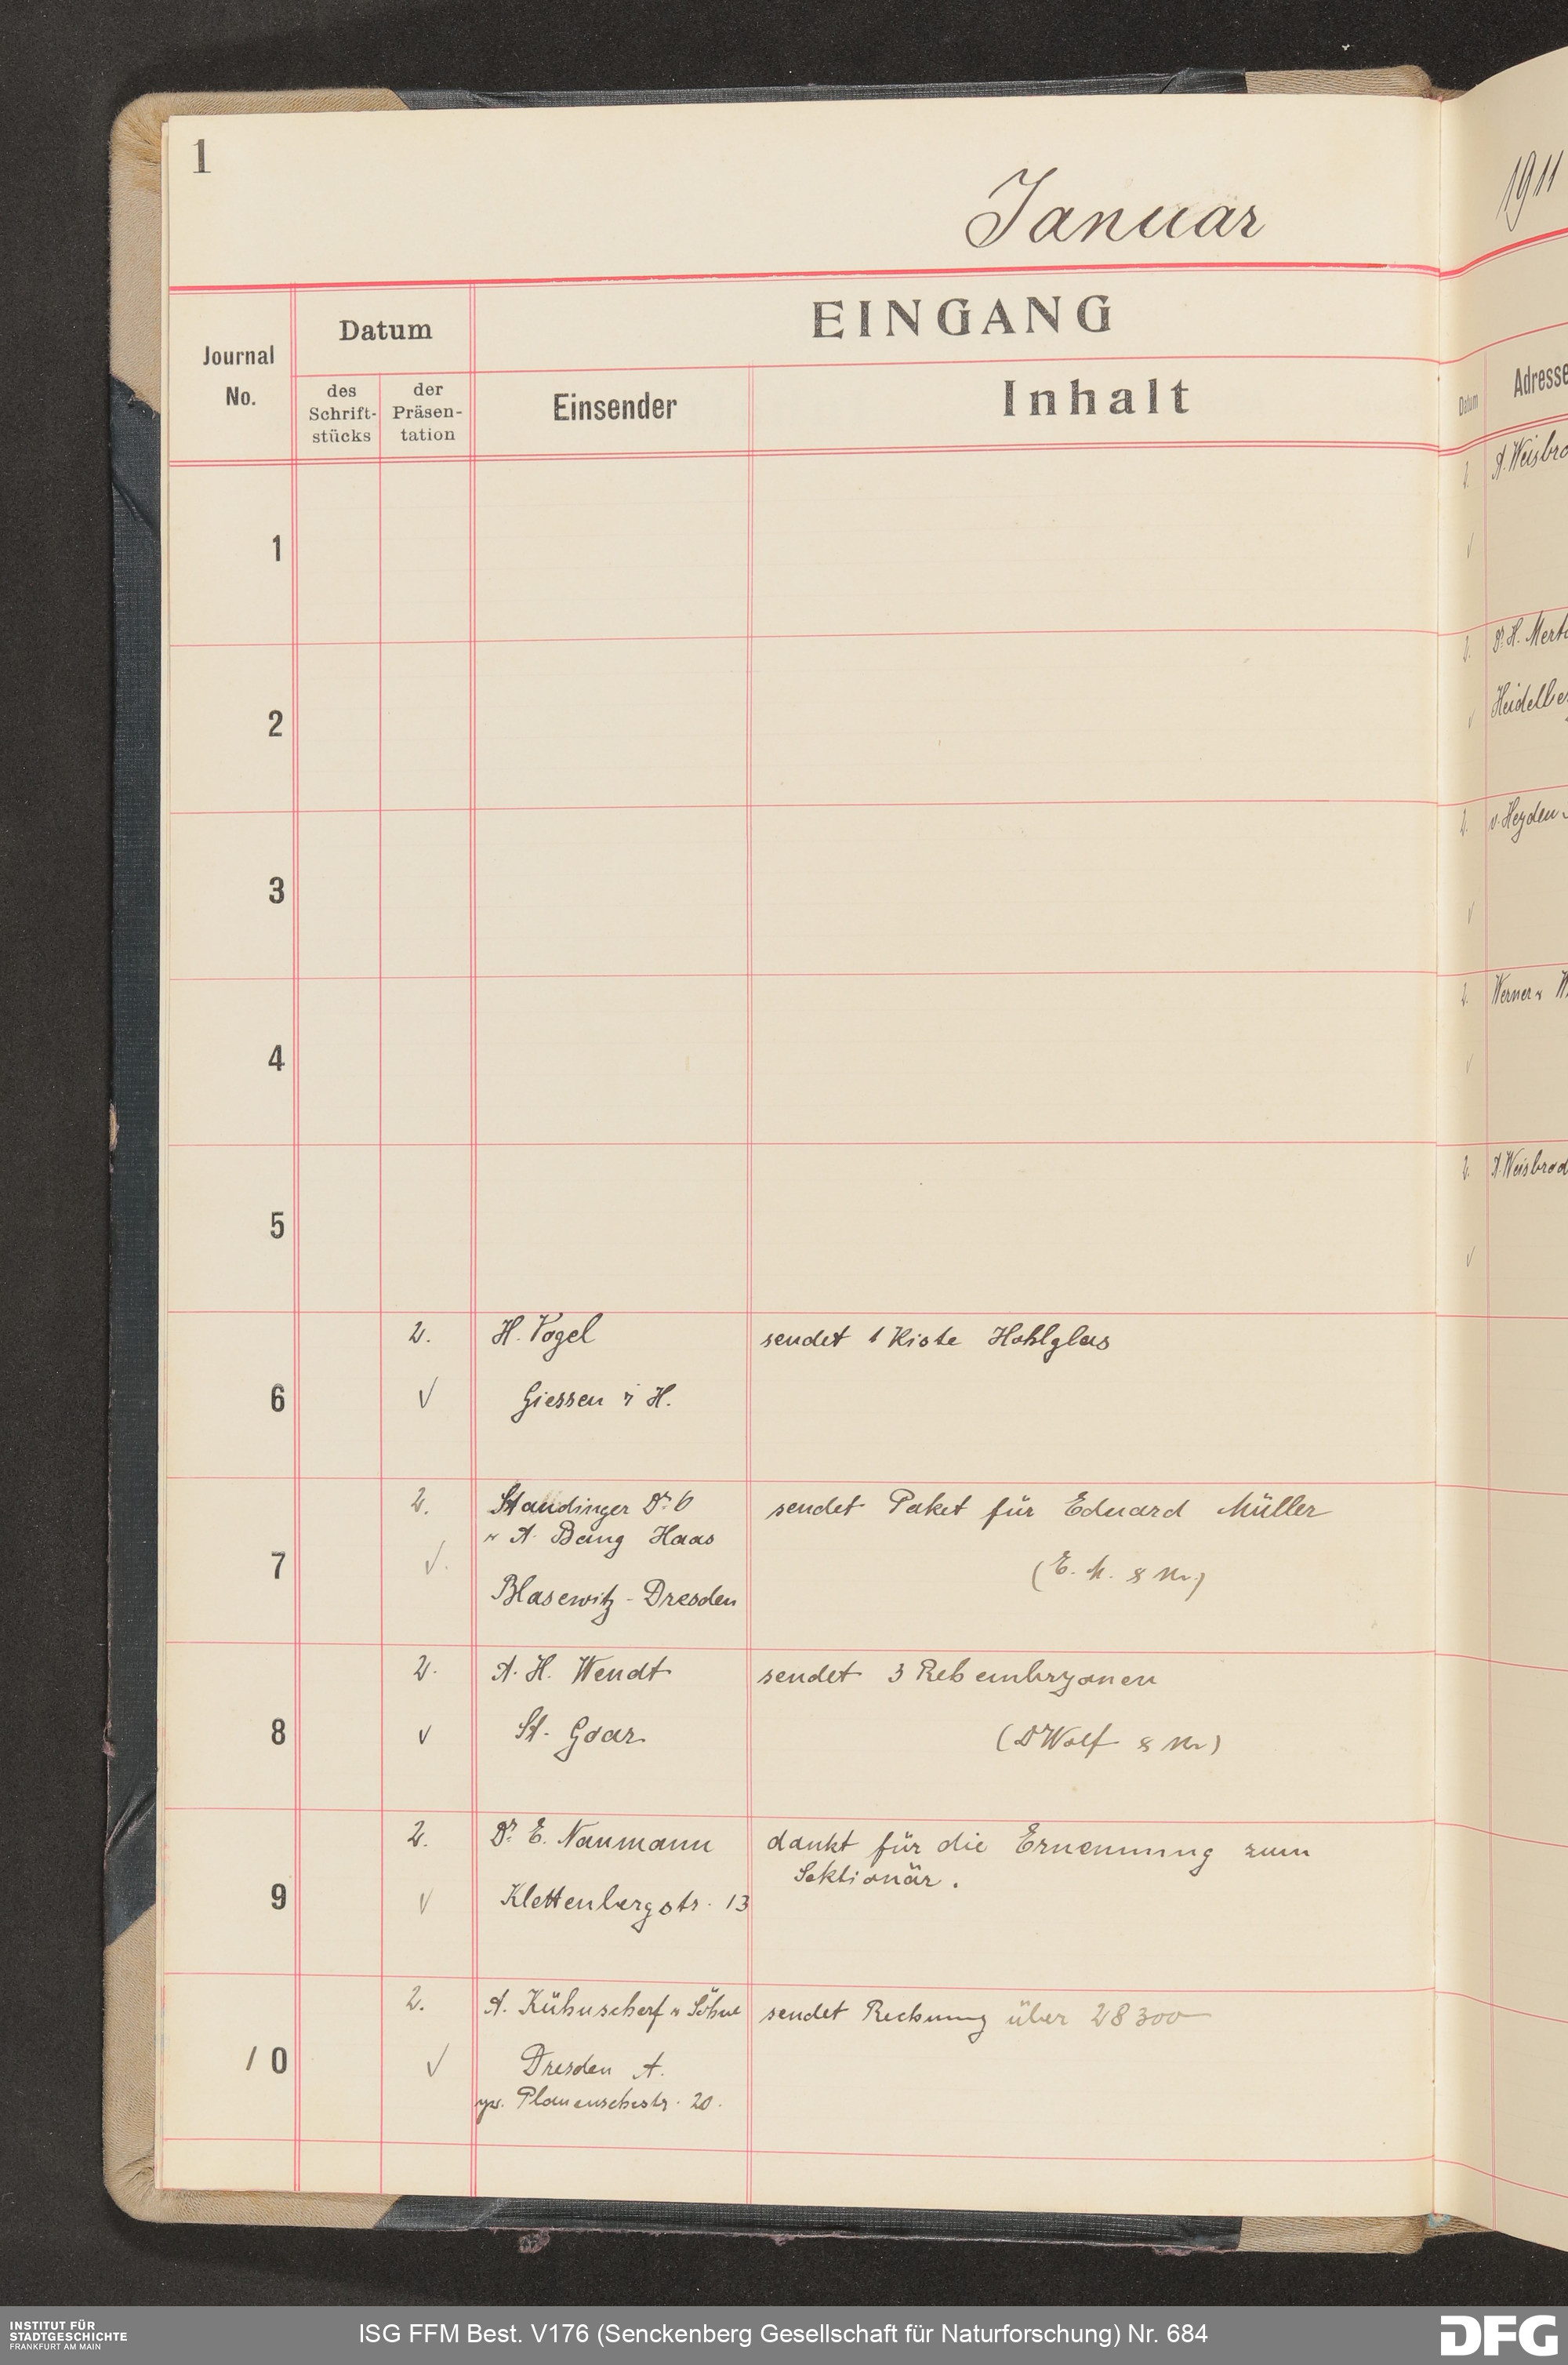 1
Januar
1911
EINGANG
Journal
No.
Datum
des
Schrift-
stücks
der
Präsen-
tation
Einsender
Inhalt
Datum
Adresse
1
2. A. Weisbro
2
2. Dr. H. Mert
Heidelbe
3
2. v. Heyden
4
2. Werner u W
5
2. A. Weisbrod
6
2. H. Vogel sendet 1 Kiste Hohlglas
Giessen i H.
7
2. Staudinger Dr. O sendet Paket für Eduard Müller
u A. Bang Haas
Blasewitz - Dresden
8
2. A. H. Wendt sendet 3 Rehembryonen
St. Goar (Dr Wolf
9
2. Dr. E. Naumann dankt für die Ernennung zum
Sektionär.
Klettenbergstr. 13
10
2. A. Kühnscherf u Söhne sendet Rechnung über 28300
Dresden A.
Plauenschestr. 20.
INSTITUT FÜR
STADTGESCHICHTE
FRANKFURT AM MAIN
ISG FFM Best. V176 (Senckenberg Gesellschaft für Naturforschung) Nr. 684
DFG